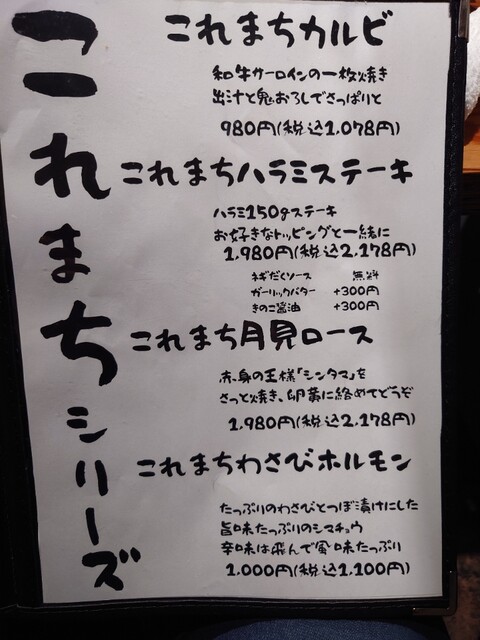 これまちシリーズ
これまちカルビ
和牛サーロインの一枚焼き
出汁と鬼おろしでさっぱりと
980円(税込1,078円)
これまちハラミステーキ
ハラミ150gステーキ
お好きなトッピングと一緒に
1,980円(税込2,178円)
ネギだくソース 無料
ガーリックバター +300円
きのこ醤油 +300円
これまち月見ロース
赤身の王様「シンタマ」を
さっと焼き、卵黄に絡めてどうぞ
1,980円(税込2,178円)
これまちわさびホルモン
たっぷりのわさびとつぼ漬けにした
旨味たっぷりのシマチョウ
辛味は飛んで風味たっぷり
1,000円(税込1,100円)